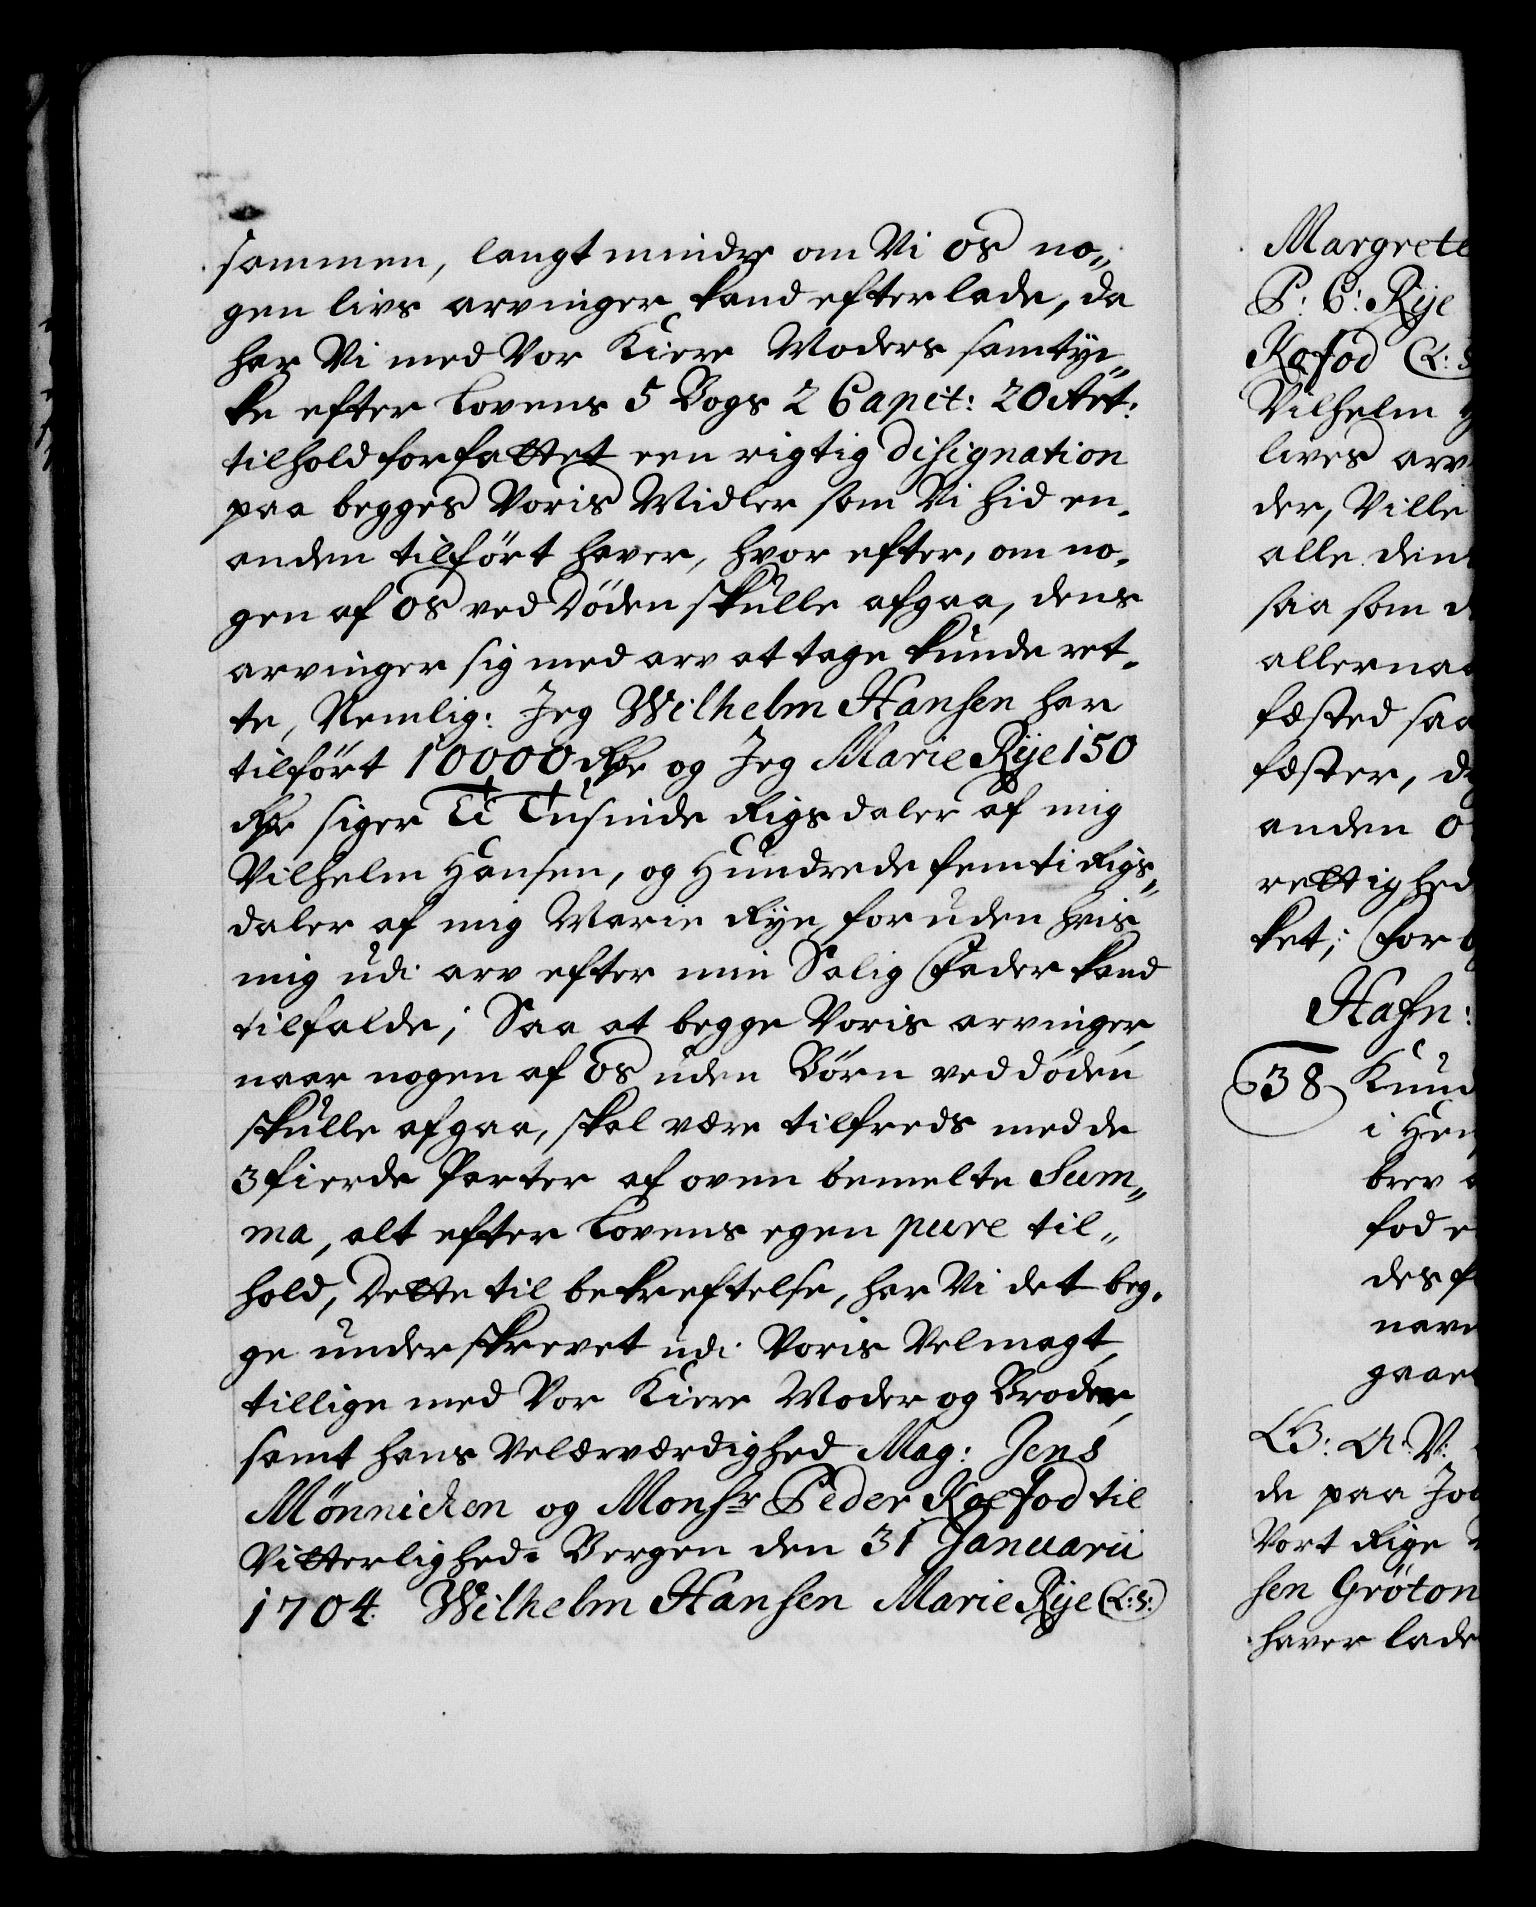 sammen, langt mindre om Vi os no„
gen livs arvinger kand efterlade, da
har Vi med Vor Kiere Moders samtyc„
ke efter Lovens 5 Bogs 2 Capit: 20 Art:
tilhold forfattet een rigtig disignation
paa begges Voris Midler som Vi hid en„
anden tilført haver, hvor efter, om no„
gen af os ved Døden skulle afgaa, dens
arvinger sig med arv at tage kunde ret„
te, Nemlig: Jeg Wilhelm Hansen har
tilført 10000 Rdr og Jeg Marie Rÿe 150
Rdr siger Ti Tusinde Rigsdaler af mig
Vilhelm Hansen, og Hundrede femti Rigs„
daler af mig Marie Rye, foruden hvis
mig udi arv efter min Salig Fader kand
tilfalde; Saa at begge Voris arvinger,
naar nogen af os uden Børn ved døden
skulle afgaa, skal være tilfreds med de
3 fierde Parter af oven bemelte Sum„
ma, alt efter Lovens egen pure til„
hold, Dette til bekreftelse, har Vi det beg„
ge underskrevet udi Voris Velmagt,
tillige med Vor Kiere Moder og Broder,
samt hans Velærværdighed Mag: Jens
Mönnichen og Monsr Peder Kofod til
Vitterlighed. Bergen den 31 Januarii
1704. Wilhelm Hansen Marie Rÿe (L:S:)
Margrete
P: C: Rÿe
Kofod (L: S
Vilhelm H
lives arv
der, Ville
alle den
saa som d
allernaa
fæsted saa
fæster, d
anden o
rettighed
ket; For
Hafn:
38 Knud
i Hen
brev
fod e
des f
navn
gaar
G: A: V:
de paa Jo
Vort Rige
sen Gröton
haver lade